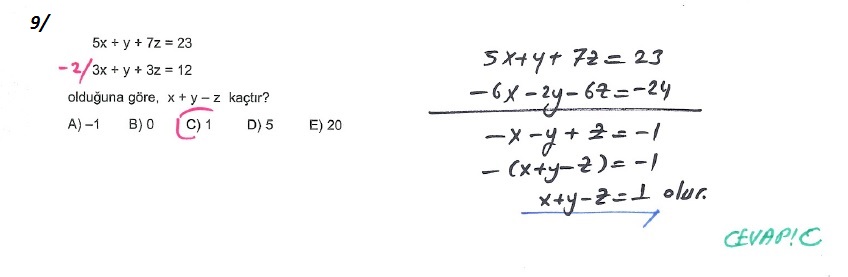 9/
5x + y + 7z = 23
-2/ 3x + y + 3z = 12
olduğuna göre, x + y – z kaçtır?
A) –1 B) 0 C) 1 D) 5 E) 20
5x+y+7z=23
-6x-2y-6z=-24
-x-y+z=-1
-(x+y-z)=-1
x+y-z=1 olur.
CEVAP!C